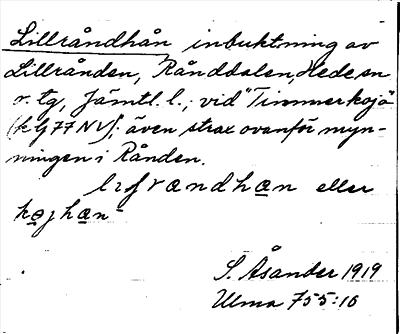 Lillråndhån inbuktning av
Lillrånden, Rånddalen, Hede sn
o. tg, Jämtl. l.; vid "Timmerkoja"
(kG77NV); även strax ovanför myn-
ningen i Rånden.
eller
kojhan
S. Åsander 1919
Ulma 755:16